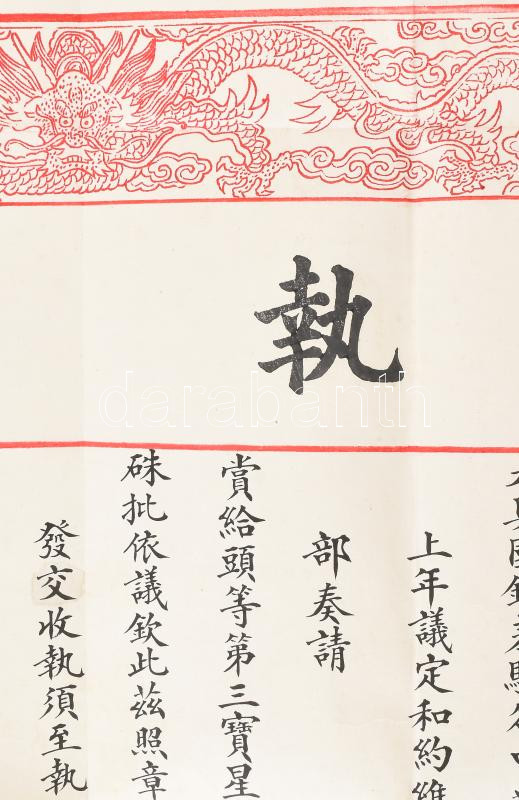 執
上年議定和約
部奏請
賞給頭等第三寶星
硃批依議欽此茲照章
發交收執須至執
darabanth